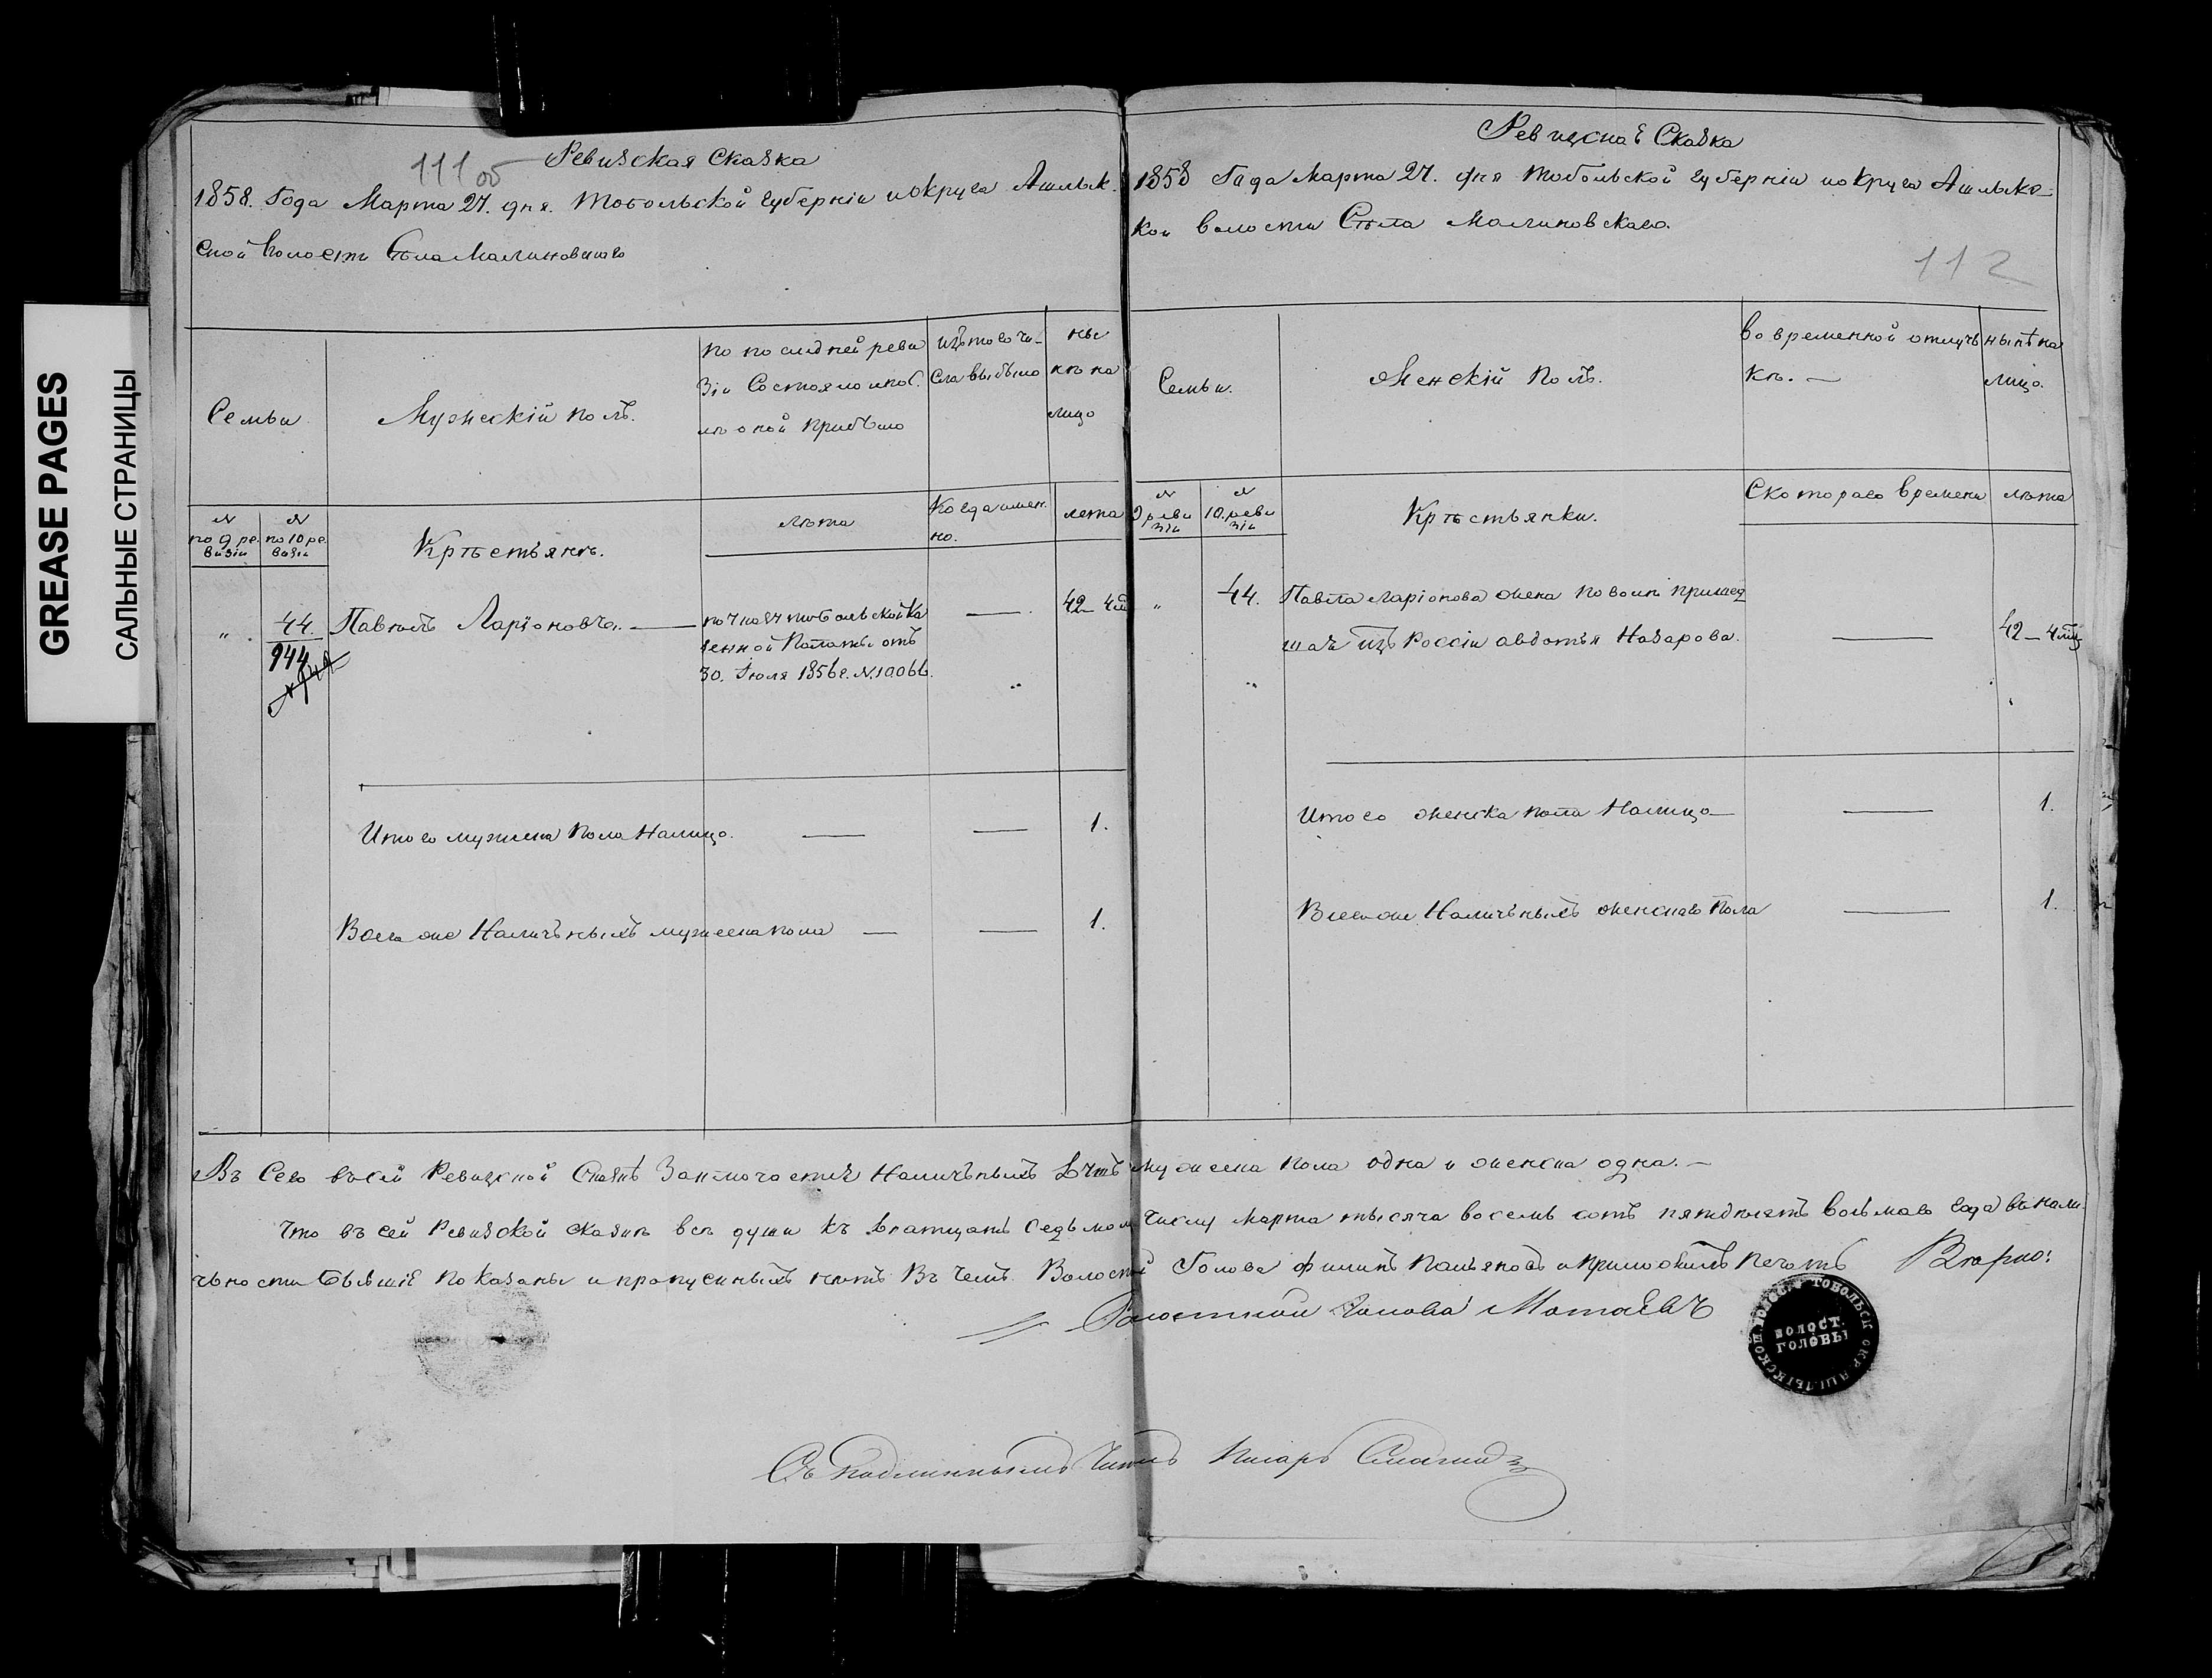 GREASE PAGES
САЛЬНЫЕ СТРАНИЦЫ
111 об
Ревизская Сказка
1858. Года Марта 27. дня. Тобольской Губерніи и округа Ашлык-
ской Волости Села Малиновскаго
Семьи
Мужескій полъ.
по последней реви
зіи Состояло и пос.
лѣ оной прибыло
изъ того чи-
сла выбыло
ны
нѣ на
лицо
N
по 9 ре.
визіи
N
по 10 ре.
визіи
Крѣстьянъ.
лѣта
Когда имен.
но.
лета
" .
44.
944
Павѣлъ Ларіоновъ.
Тобольской Ка
зенной Палаты отъ
30. Іюля 1856 г. N. 10066.
42 – 4
Итого мужеска пола Налицо.
1.
Всего же Наличъныхъ мужеска пола
1.
Ревизская Сказка
1858 Года Марта 27. дня Тобольской губерніи и округа Ашлыкс-
кой волости Села Малиновскаго.
112
Семьи.
Женскій полъ.
во временной отлуч
кѣ. —
нынѣ на
лицо.
N
9 реви
зіи
N
10. реви
зіи
Крѣстьянки.
Скотораго времени
лѣта
"
44.
Павла Ларіонова жена по воли пришед
шая изъ Россіи авдотья Назарова.
42 – 4 мц
Итого женска пола Налицо
1.
Всего же Наличъныхъ женскаго пола
1.
Всего въ сей Ревизской Сказкѣ Заключается Наличъныхъ Душъ мужеска пола одна и женска одна. —
Что въ сей Ревизской сказкѣ всѣ души къ Дватцать Седьмому Числу Марта тысяча восемь сотъ пятдѣсятъ восьмаго Года въ нали
чьности бывшіе показаны и пропусныхъ нѣтъ Въ чемъ Волосной Голова Филипъ и приложилъ печать Вѣрно:
Волостной Голова
ВОЛОСТ.
ГОЛОВЫ
Съ Подлиннымъ Читалъ Писарь